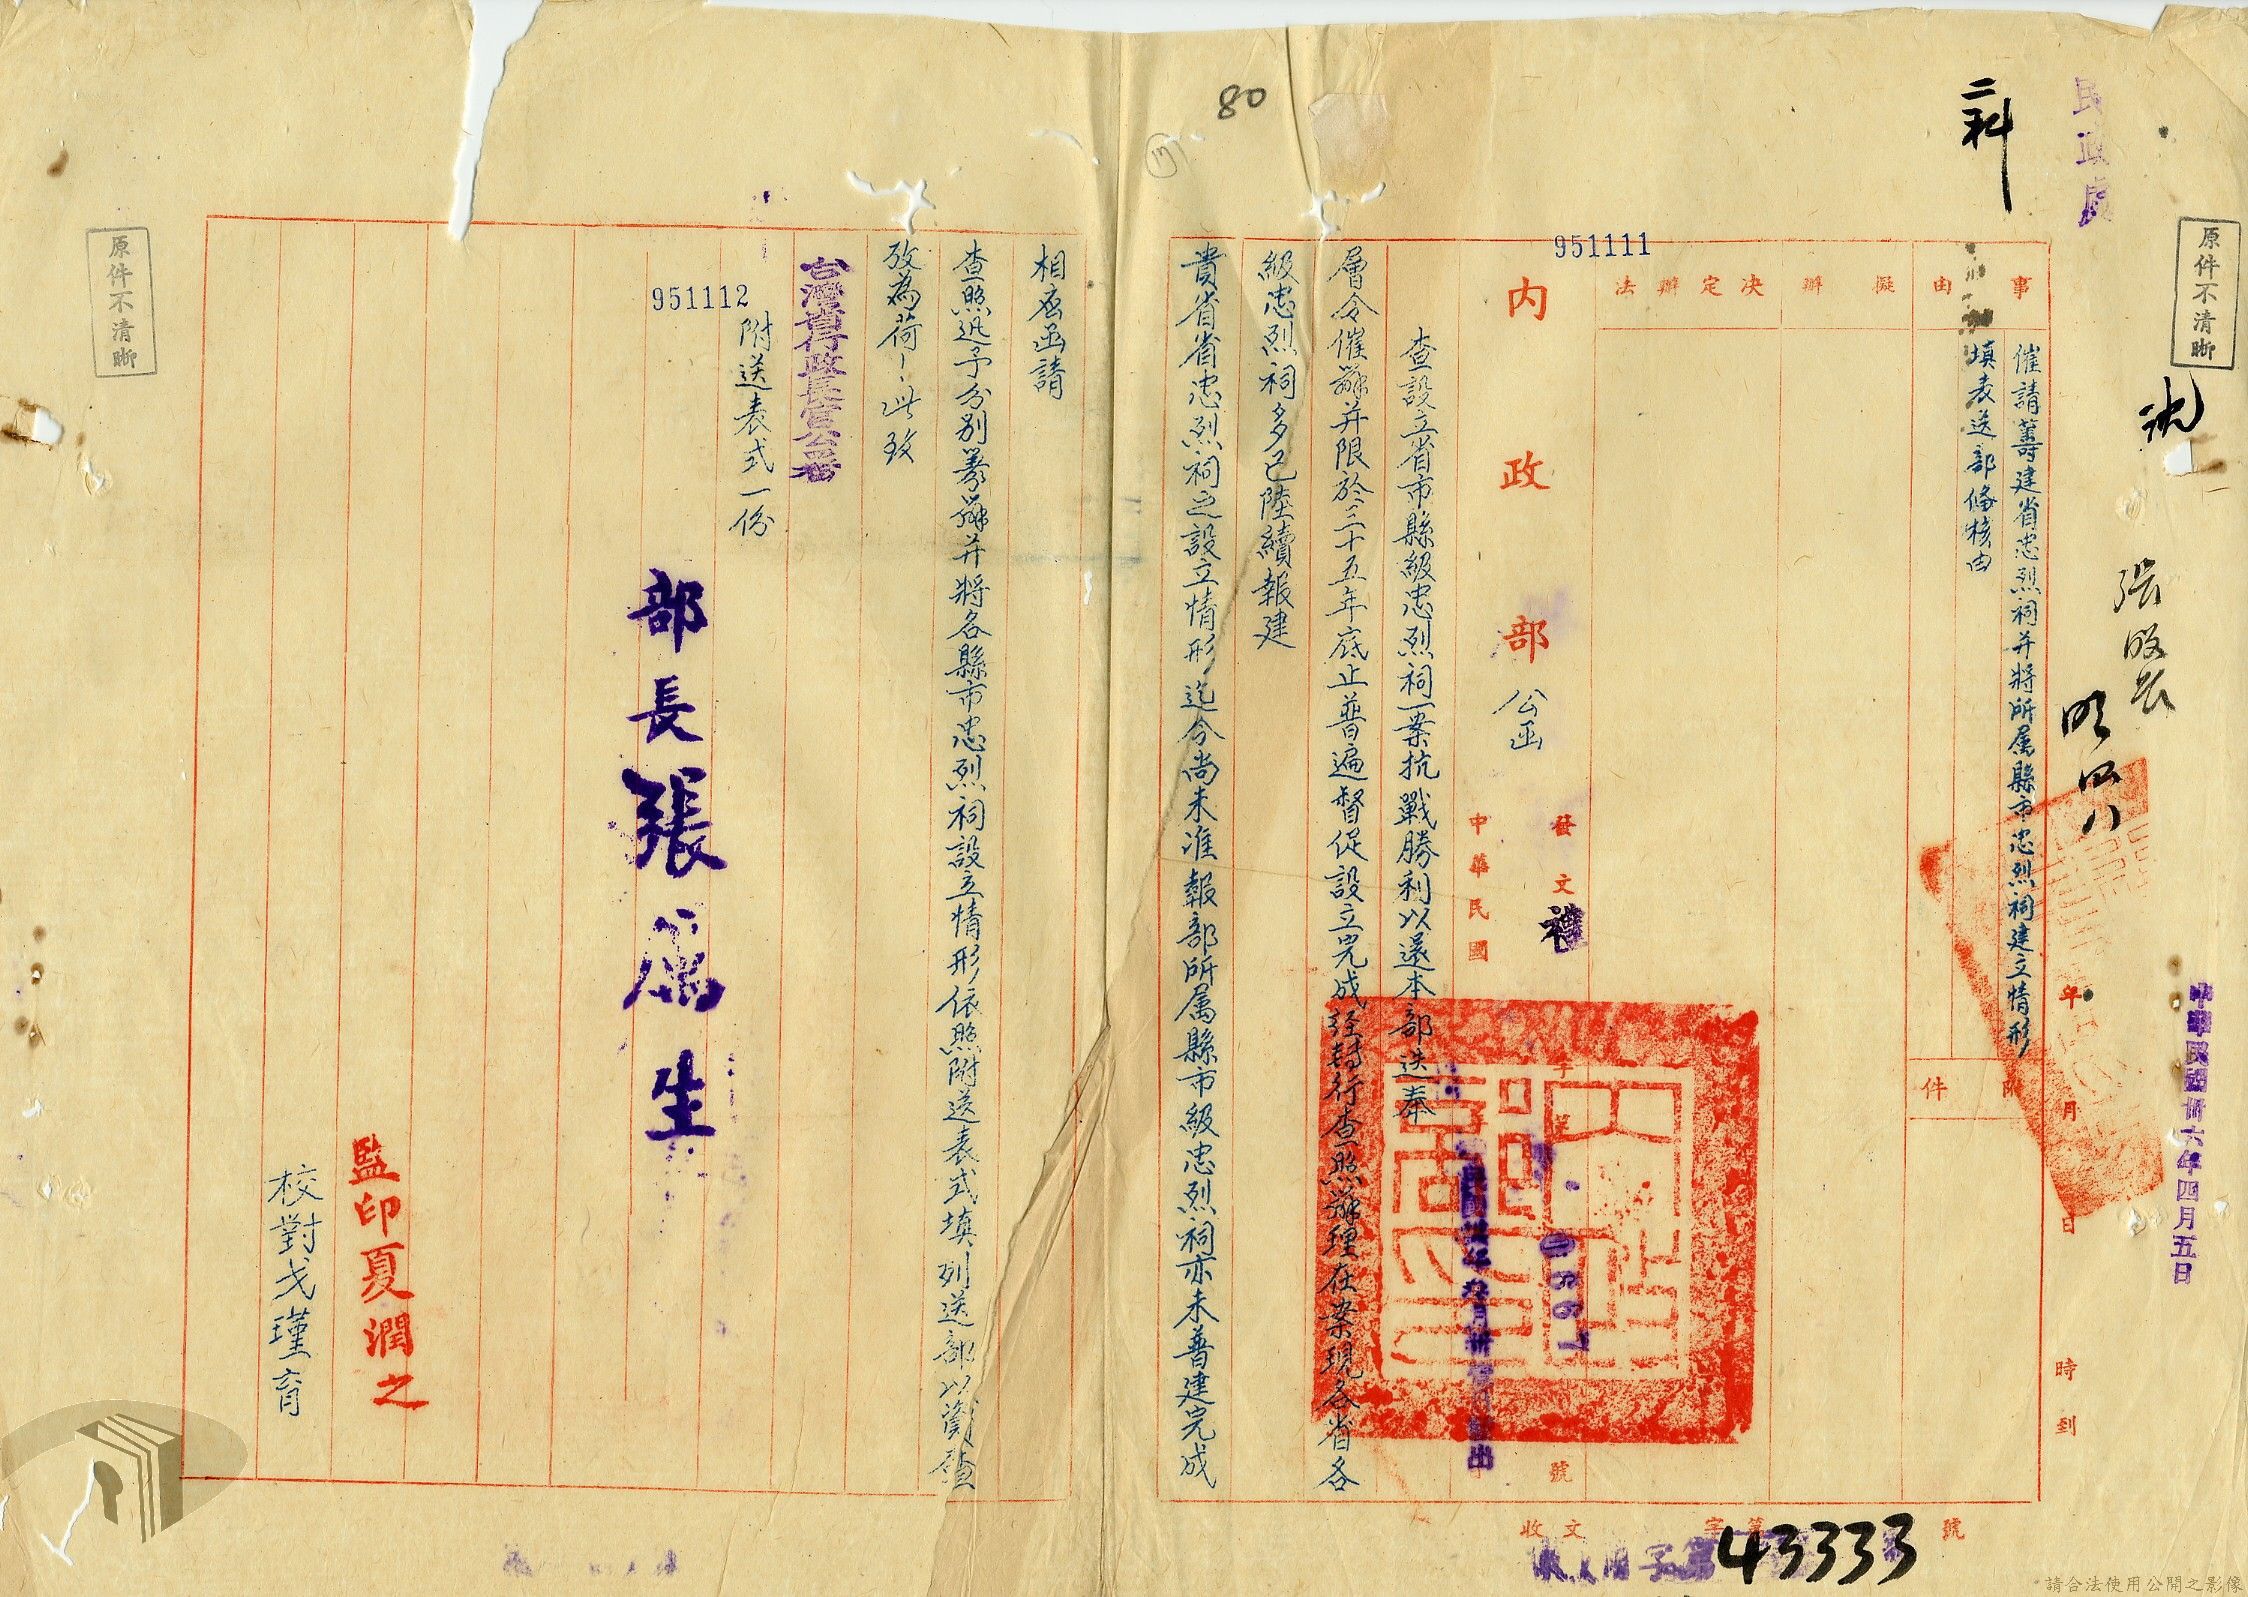 民政處
二科
80
原件不清晰
中華民國卅六年四月五日
年 月 日 時到
事由
催請籌建省忠烈祠并將所属縣市忠烈祠建立情形
填表送部俻核由
附件
擬辦
決定辦法
951111
內政部
公函
發文
禮
字第
0867
號
中華民國
查設立省市縣級忠烈祠一案抗戰勝利以還本部迭奉
層令催辦并限於三十五年底止普遍督促設立完成經轉行查照辦理在案現各省各
級忠烈祠多已陸續報建
貴省省忠烈祠之設立情形迄今尚未准報部所属縣市級忠烈祠亦未普建完成
相應函請
查照迅予分别籌辦并將各縣市忠烈祠設立情形依照附送表式填列送部以資存查
攷為荷此致
台灣省行政長官公署
附送表式一份
951112
部長張厲生
監印夏潤之
校對戈瑾育
原件不清晰
收文 字第 號
43333
請合法使用公開之影像